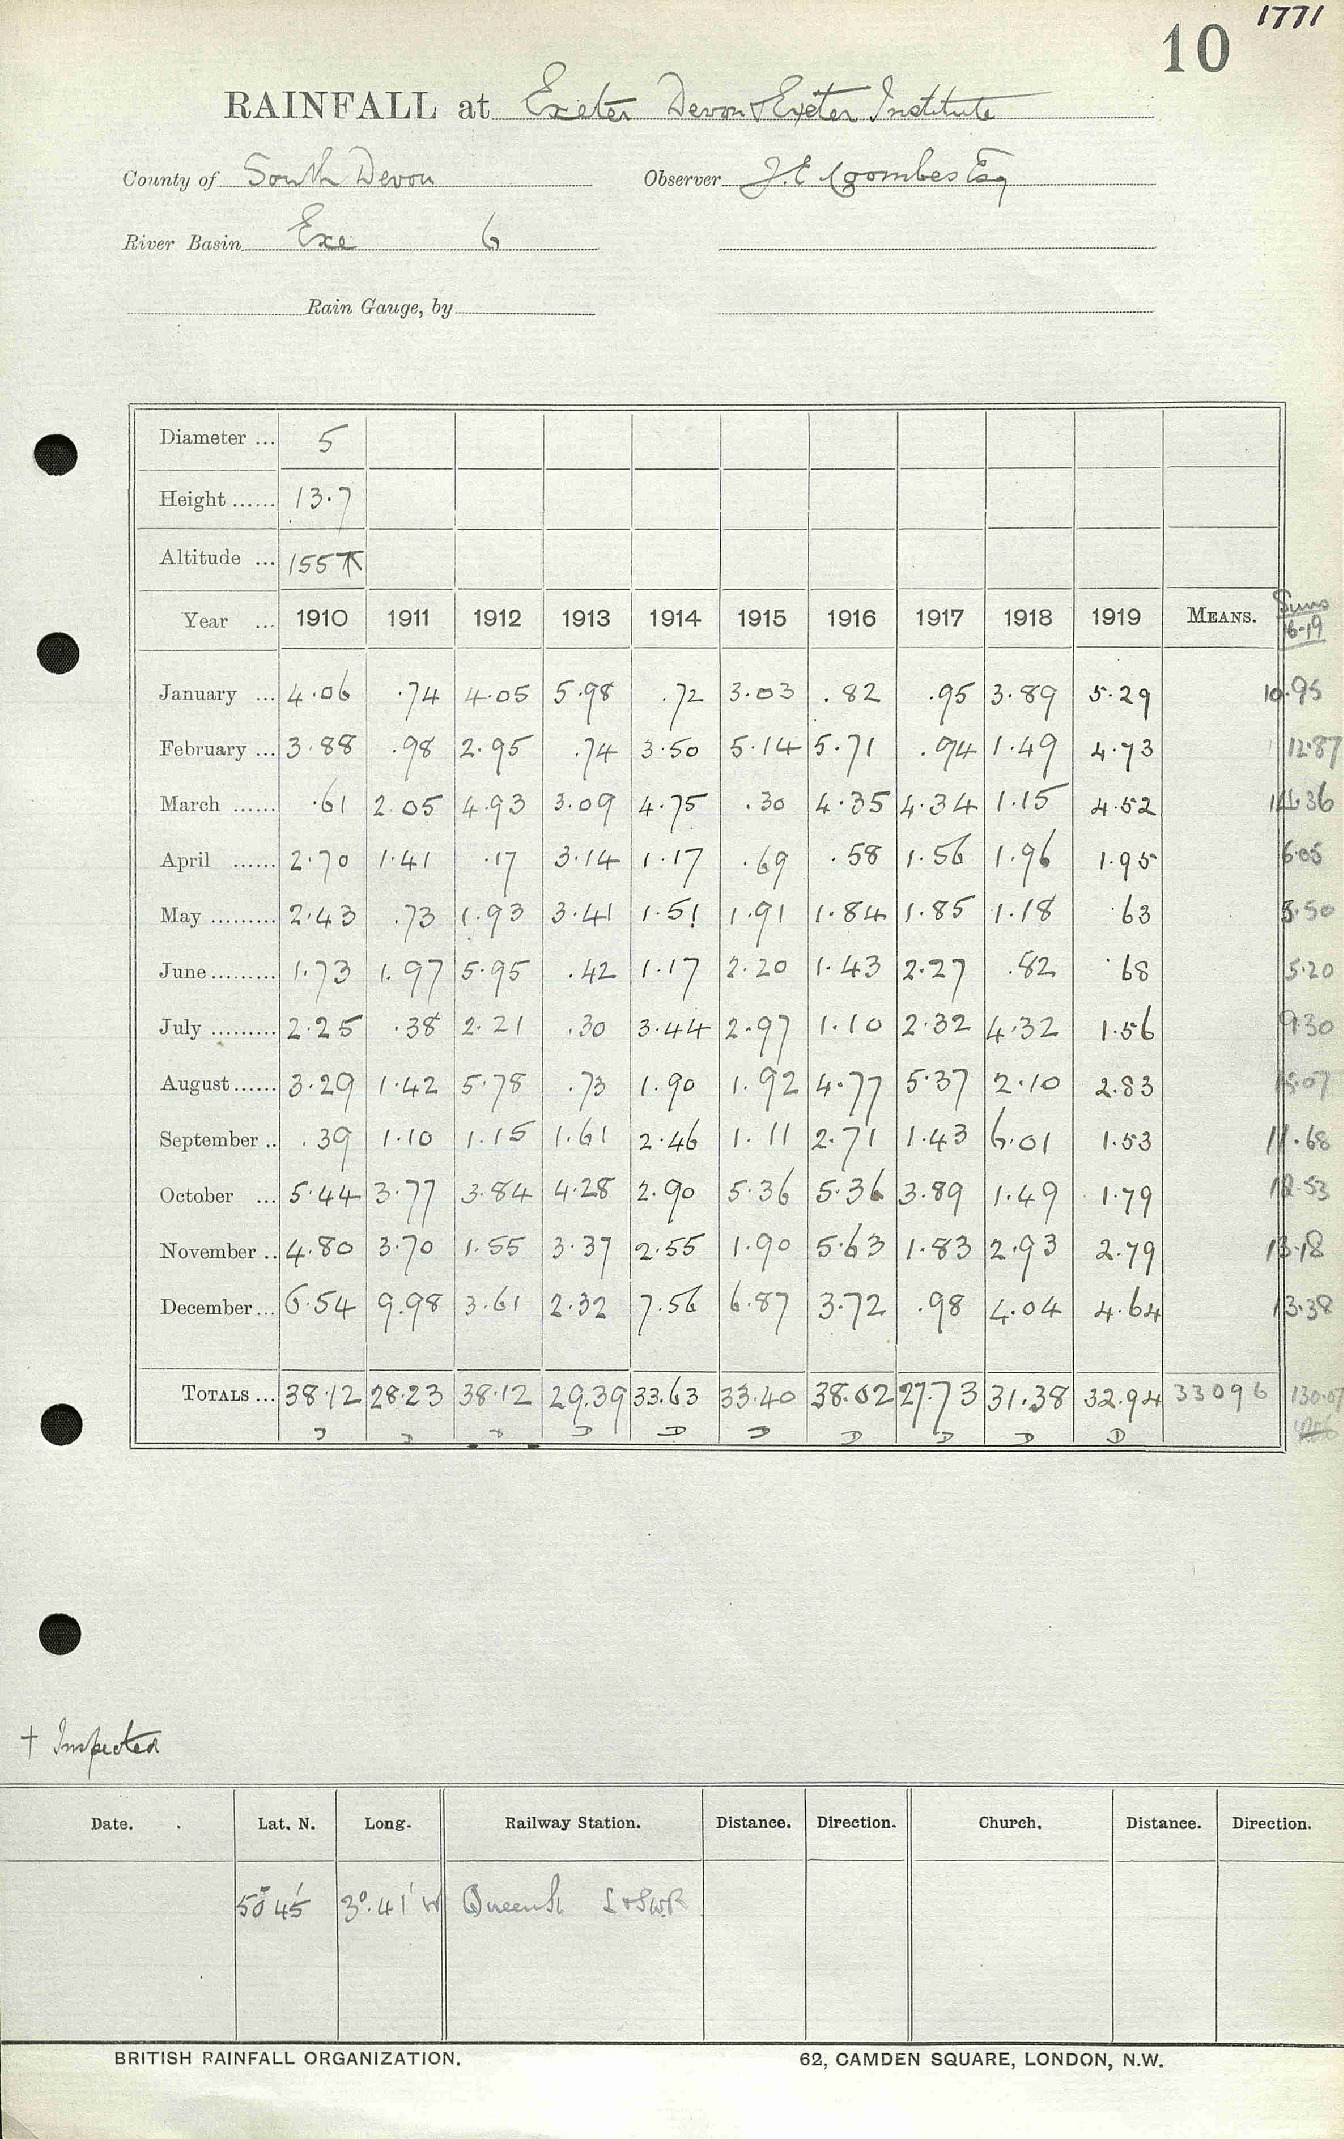 1771
10
RAINFALL at Exeter Devon & Exeter Institute
County of South Devon Observer J.E Coombes Esq
River Basin Exe 6
Rain Gauge, by
Diameter ... 5
Height ...... 13.7
Altitude ... 155
Year ... 1910 1911 1912 1913 1914 1915 1916 1917 1918 1919 MEANS. Sums 16-19
January ... 4.06 .74 4.05 5.98 .72 3.03 .82 .95 3.89 5.29 10.95
February ... 3.88 .98 2.95 .74 3.50 5.14 5.71 .94 1.49 4.73 12.87
March ...... .61 2.05 4.93 3.09 4.75 .30 4.35 4.34 1.15 4.52 14.36
April ...... 2.70 1.41 .17 3.14 1.17 .69 .58 1.56 1.96 1.95 6.05
May ......... 2.43 .73 1.93 3.41 1.51 1.91 1.84 1.85 1.18 .63 5.50
June ......... 1.73 1.97 5.95 .42 1.17 2.20 1.43 2.27 .82 .68 5.20
July ......... 2.25 .38 2.21 .30 3.44 2.97 1.10 2.32 4.32 1.56 9.30
August ...... 3.29 1.42 5.78 .73 1.90 1.92 4.77 5.37 2.10 2.83 15.07
September .. .39 1.10 1.15 1.61 2.46 1.11 2.71 1.43 6.01 1.53 11.68
October ... 5.44 3.77 3.84 4.28 2.90 5.36 5.36 3.89 1.49 1.79 12.53
November .. 4.80 3.70 1.55 3.37 2.55 1.90 5.63 1.83 2.93 2.79 13.18
December ... 6.54 9.98 3.61 2.32 7.56 6.87 3.72 .98 4.04 4.64 13.38
TOTALS ... 38.12 28.23 38.12 29.39 33.63 33.40 38.02 27.73 31.38 32.94 33096 130.07
† Inspected
Date. Lat. N. Long. Railway Station. Distance. Direction. Church. Distance. Direction.
50° 45' 3°.41' W Queen St L & S W.R
BRITISH RAINFALL ORGANIZATION. 62, CAMDEN SQUARE, LONDON, N.W.